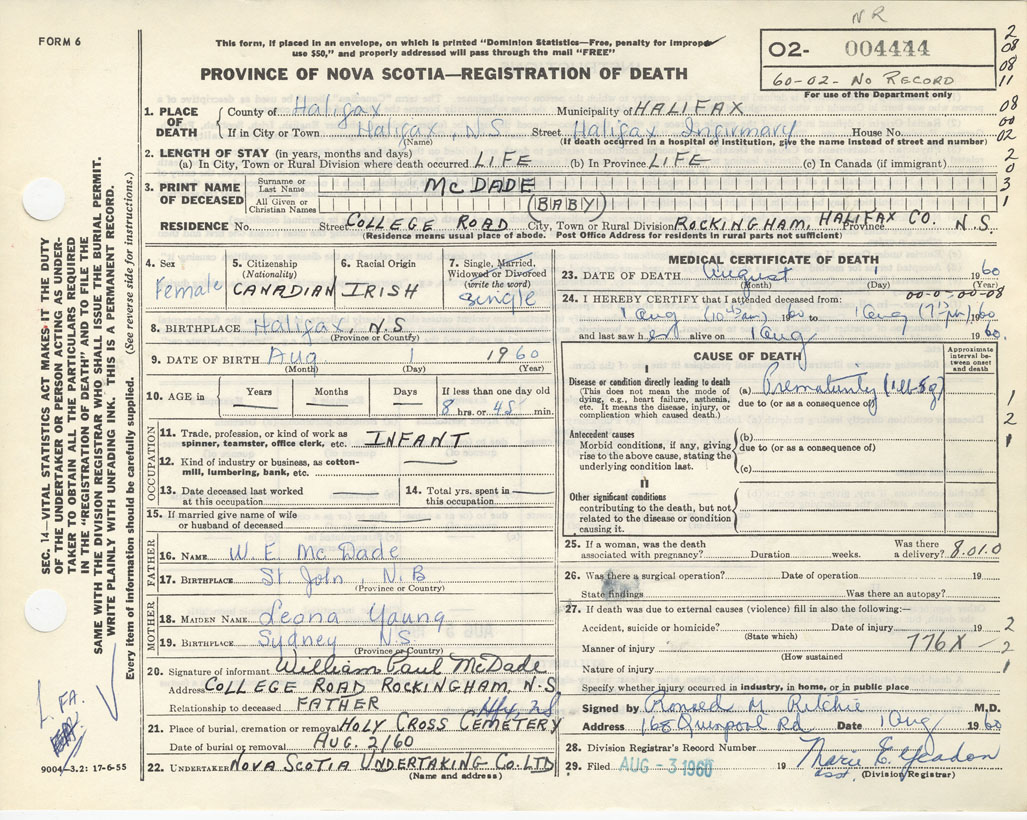 NR
FORM 6
This form, if placed in an envelope, on which is printed "Dominion Statistics—Free, penalty for improper
use $50," and properly addressed will pass through the mail "FREE"
PROVINCE OF NOVA SCOTIA—REGISTRATION OF DEATH
02- 004444
60-02- No RECORD
For use of the Department only
2
08
08
11
08
00
02
2
0
3
1
1. PLACE OF DEATH
County of Halifax Municipality of HALIFAX
If in City or Town Halifax, N.S Street Halifax Infirmary House No.
(Name) (If death occurred in a hospital or institution, give the name instead of street and number)
2. LENGTH OF STAY (in years, months and days)
(a) In City, Town or Rural Division where death occurred LIFE (b) In Province LIFE (c) In Canada (if immigrant)
3. PRINT NAME OF DECEASED
Surname or Last Name McDADE
All Given or Christian Names (BABY)
RESIDENCE No. Street COLLEGE ROAD City, Town or Rural Division ROCKINGHAM, HALIFAX CO. Province N.S.
(Residence means usual place of abode. Post Office Address for residents in rural parts not sufficient)
SEC. 14—VITAL STATISTICS ACT MAKES IT THE DUTY
OF THE UNDERTAKER OR PERSON ACTING AS UNDER-
TAKER TO OBTAIN ALL THE PARTICULARS REQUIRED
IN THE "REGISTRATION OF DEATH" AND FILE THE
SAME WITH THE DIVISION REGISTRAR WHO SHALL ISSUE THE BURIAL PERMIT.
WRITE PLAINLY WITH UNFADING INK. THIS IS A PERMANENT RECORD.
Every item of information should be carefully supplied. (See reverse side for instructions.)
4. Sex
Female
5. Citizenship
(Nationality)
CANADIAN
6. Racial Origin
IRISH
7. Single, Married,
Widowed or Divorced
(write the word)
Single
8. BIRTHPLACE Halifax, N.S.
(Province or County)
9. DATE OF BIRTH Aug 1 1960
(Month) (Day) (Year)
10. AGE in
Years
Months
Days
If less than one day old
8 hrs. or 45 min.
OCCUPATION
11. Trade, profession, or kind of work as
spinner, teamster, office clerk, etc. INFANT
12. Kind of industry or business, as cotton-
mill, lumbering, bank, etc.
13. Date deceased last worked
at this occupation
14. Total yrs. spent in
this occupation
15. If married give name of wife
or husband of deceased
FATHER
16. NAME W. E. McDade
17. BIRTHPLACE St John, N.B
(Province or County)
MOTHER
18. MAIDEN NAME Leona Young
19. BIRTHPLACE Sydney NS
(Province or County)
20. Signature of informant William Paul McDade
Address COLLEGE ROAD ROCKINGHAM, N.S.
Relationship to deceased FATHER Hfx NS
21. Place of burial, cremation or removal HOLY CROSS CEMETERY
Date of burial or removal AUG. 2/60
22. UNDERTAKER NOVA SCOTIA UNDERTAKING CO. LTD
(Name and address)
L. FA.
9004-3.2: 17-6-55
MEDICAL CERTIFICATE OF DEATH
23. DATE OF DEATH August 1 1960
(Month) (Day) (Year)
00-0-00-08
24. I HEREBY CERTIFY that I attended deceased from:
1 Aug 1960 to 1 Aug 1960
and last saw her alive on 1 Aug 1960.
CAUSE OF DEATH
Approximate
interval be-
tween onset
and death
I
Disease or condition directly leading to death
(This does not mean the mode of
dying, e.g., heart failure, asthenia,
etc. It means the disease, injury, or
complication which caused death.)
(a) Prematurity
due to (or as a consequence of)
1
2
1
Antecedent causes
Morbid conditions, if any, giving
rise to the above cause, stating the
underlying condition last.
(b)
due to (or as a consequence of)
(c)
II
Other significant conditions
contributing to the death, but not
related to the disease or condition
causing it.
25. If a woman, was the death
associated with pregnancy? Duration weeks. Was there
a delivery? 8.01.0
26. Was there a surgical operation? Date of operation 19
State findings Was there an autopsy?
27. If death was due to external causes (violence) fill in also the following:—
Accident, suicide or homicide? Date of injury 19 2
(State which)
Manner of injury 776X 2
(How sustained
Nature of injury 1
Specify whether injury occurred in industry, in home, or in public place
Signed by Ronald M. Ritchie M.D.
Address 168 Quinpool Rd Date 1 Aug 1960
28. Division Registrar's Record Number
29. Filed AUG - 3 1960 19 Marie
asst. (Division Registrar)